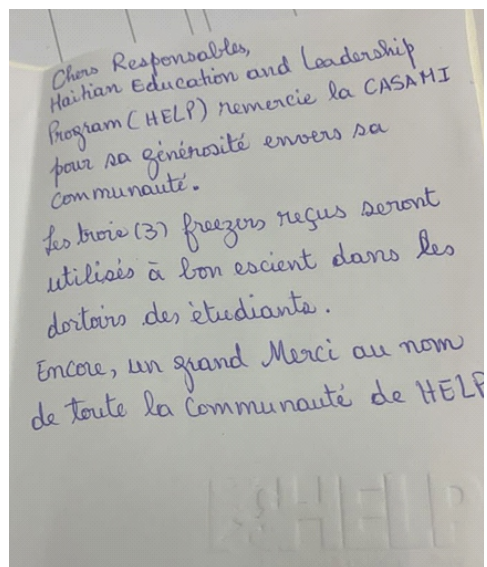 Chers Responsables,
Haitian Education and Leadership
Program (HELP) remercie la CASAMI
pour sa générosité envers sa
communauté.
Les trois (3) freezers reçus seront
utilisés à bon escient dans les
dortoirs des étudiants.
Encore, un grand Merci au nom
de toute la Communauté de HELP
HELP